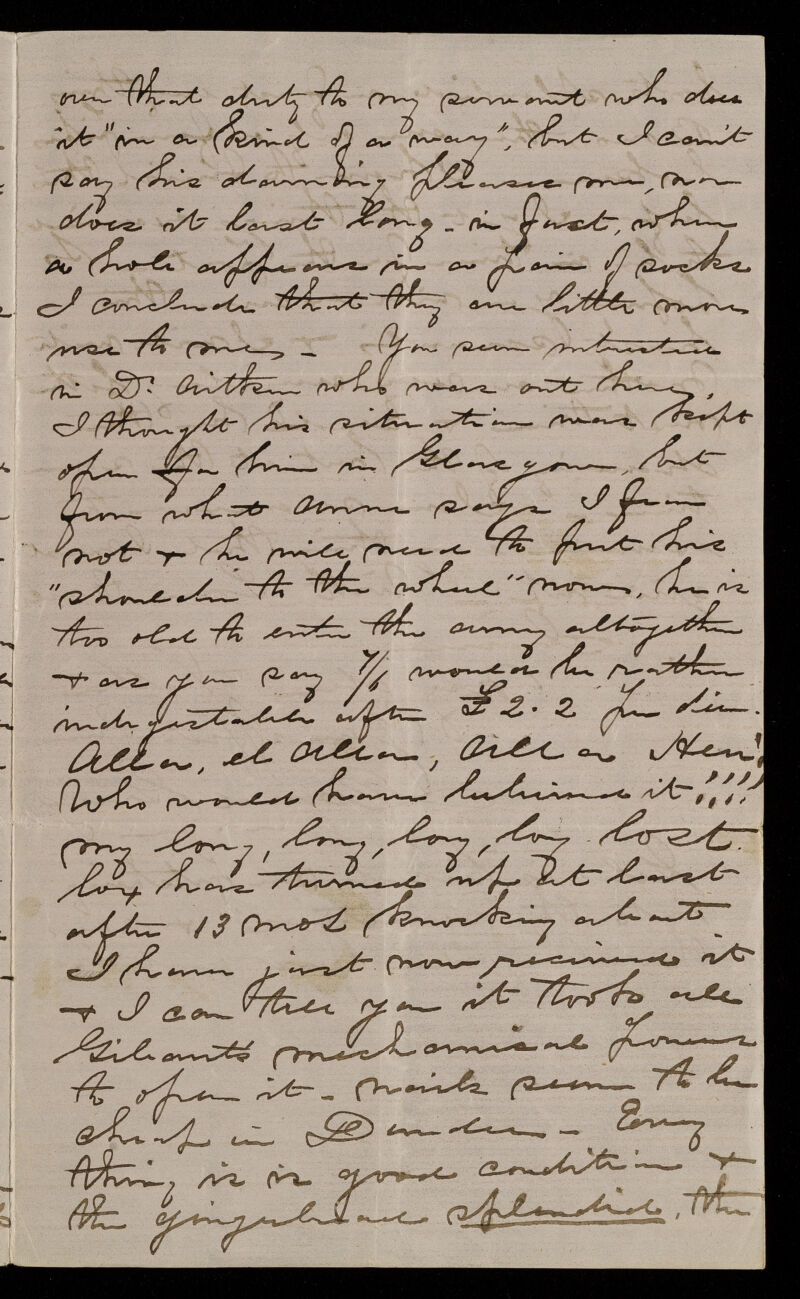 over that duty to my servant who does
it "in a kind of a way", but I can't
say his darning pleases me, nor
does it last long - in fact, when
a hole appears in a pair of socks
I conclude that they are little more
use to me, - You seem interested
in Dr. Aitken who was out here,
I thought his situation was kept
open for him in Glasgow, but
from what Anne says I fear
not & he will need to put his
"shoulder to the wheel" now, he is
too old to enter the army altogether
& as you say 7/6 would be rather
indigestable after £2.2 per diem.
Alla, el Alla, Alla Hen!
Who would have believed it!!!!
my long, long, long, long lost
box has turned up at last
after 13 mos knocking about
I have just now received it
& I can tell you it took all
mechanical powers
to open it - nails seem to be
cheap in Dundee - Every
thing is in good condition &
the gingerbread splendid, the